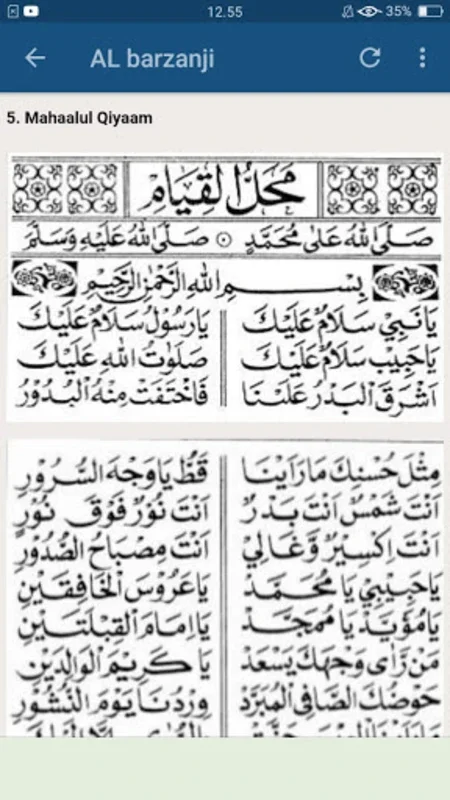 12.55
35%
AL barzanji
5. Mahaalul Qiyaam
مَحَلُّ الْقِيَامِ
صَلَّى اللّٰهُ عَلٰى مُحَمَّدٍ ۞ صَلَّى اللّٰهُ عَلَيْهِ وَسَلَّمَ
بِسْمِ اللّٰهِ الرَّحْمٰنِ الرَّحِيْمِ
يَا نَبِيْ سَلَامٌ عَلَيْكَ يَا رَسُوْلُ سَلَامٌ عَلَيْكَ
يَا حَبِيْبُ سَلَامٌ عَلَيْكَ صَلَوٰتُ اللّٰهِ عَلَيْكَ
اَشْرَقَ الْبَدْرُ عَلَيْنَا فَاخْتَفَتْ مِنْهُ الْبُدُوْرُ
مِثْلَ حُسْنِكَ مَا رَاَيْنَا قَطُّ يَا وَجْهَ السُّرُوْرِ
اَنْتَ شَمْسٌ اَنْتَ بَدْرٌ اَنْتَ نُوْرٌ فَوْقَ نُوْرٍ
اَنْتَ اِكْسِيْرٌ وَّغَالِيْ اَنْتَ مِصْبَاحُ الصُّدُوْرِ
يَا حَبِيْبِيْ يَا مُحَمَّدُ يَا عَرُوْسَ الْخَافِقَيْنِ
يَا مُؤَيَّدُ يَا مُمَجَّدُ يَا اِمَامَ الْقِبْلَتَيْنِ
مَنْ رَّاٰى وَجْهَكَ يَسْعَدُ يَا كَرِيْمَ الْوَالِدَيْنِ
حَوْضُكَ الصَّافِى الْمُبَرَّدُ وِرْدُنَا يَوْمَ النُّشُوْرِ